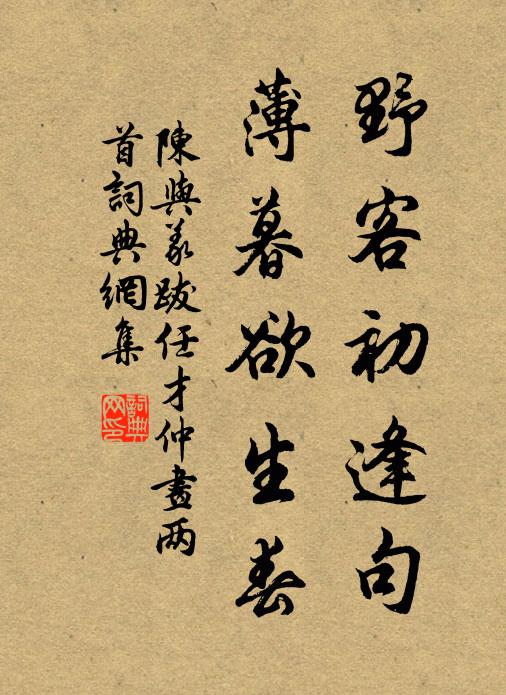 野客初逢句
薄暮欲生春
陳與義跋任才仲畫两
首詞典網集
詞典網印